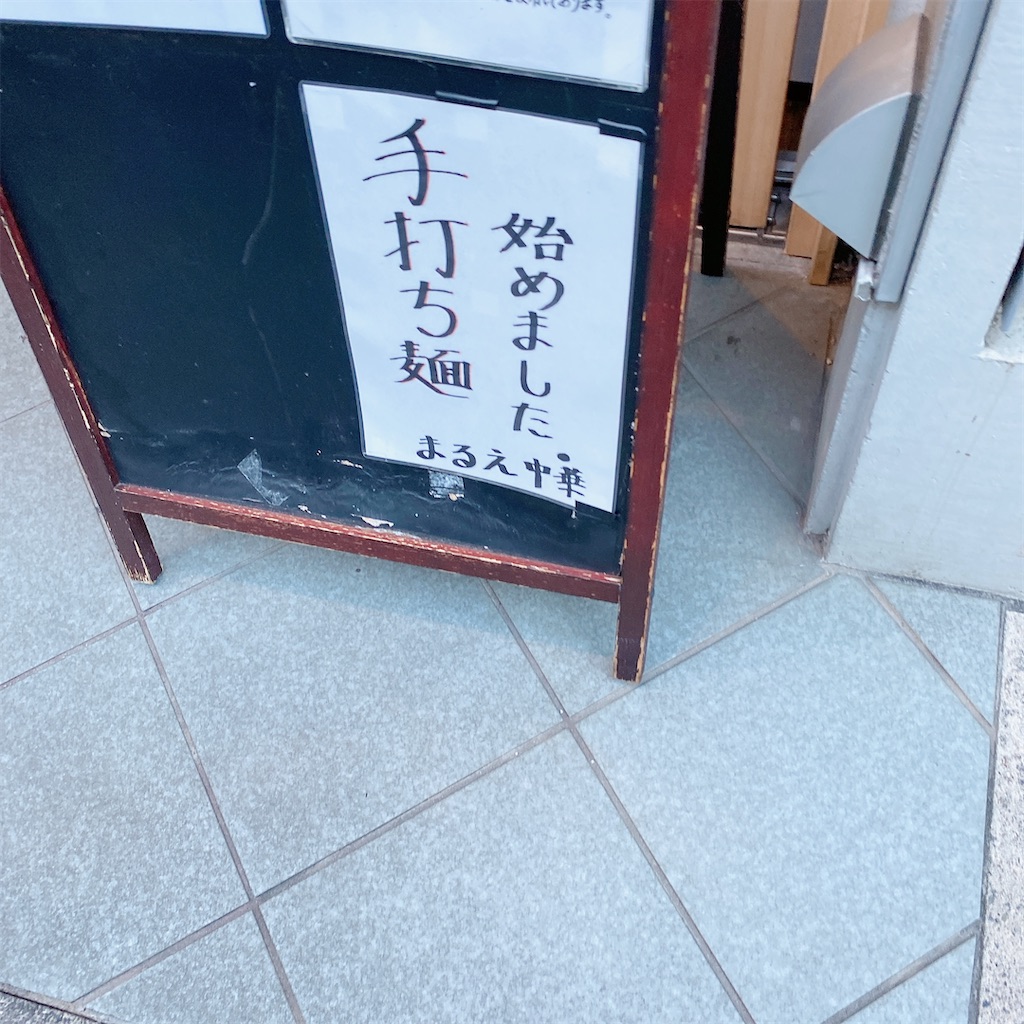 手打ち麺
始めました.
まるえ中華